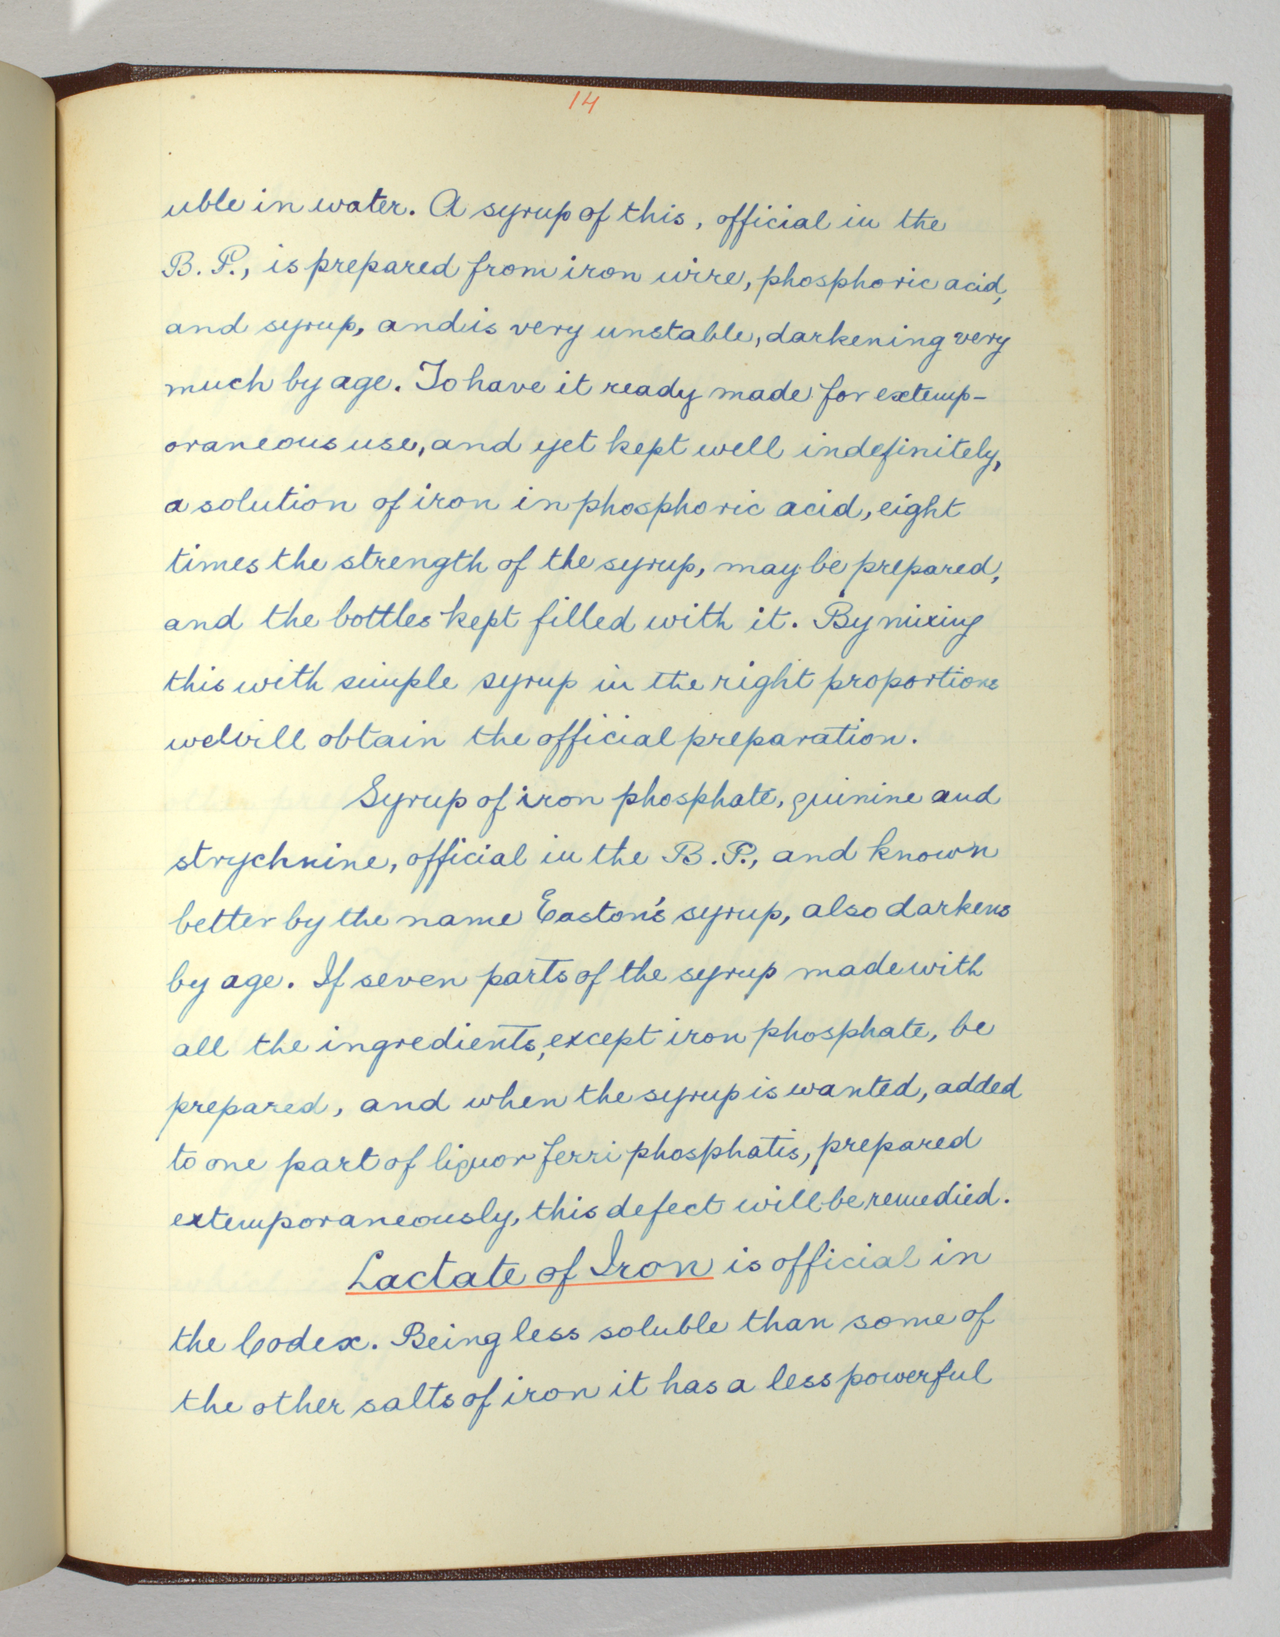 14
uble in water. A syrup of this, official in the
B. P., is prepared from iron wire, phosphoric acid,
and syrup, and is very unstable, darkening very
much by age. To have it ready made for extemp-
oraneous use, and yet kept well indefinitely,
a solution of iron in phosphoric acid, eight
times the strength of the syrup, may be prepared,
and the bottles kept filled with it. By mixing
this with simple syrup in the right proportions
we will obtain the official preparation.
Syrup of iron phosphate, quinine and
strychnine, official in the B. P., and known
better by the name Easton's syrup, also darkens
by age. If seven parts of the syrup made with
all the ingredients, except iron phosphate, be
prepared, and when the syrup is wanted, added
to one part of liquor ferri phosphatis, prepared
extemporaneously, this defect will be remedied.
Lactate of Iron is official in
the Codex. Being less soluble than some of
the other salts of iron it has a less powerful